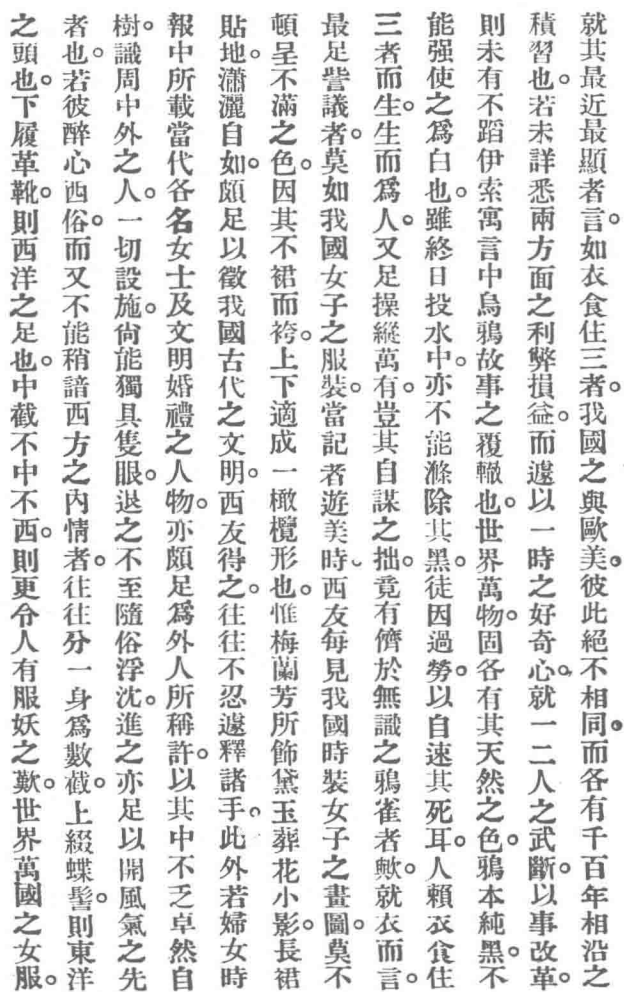 就其最近最顯者言。如衣食住三者。我國之與歐美。彼此絕不相同。而各有千百年相沿之
積習也。若未詳悉兩方面之利弊損益。而遽以一時之好奇心。就一二人之武斷。以事改革。
則未有不蹈伊索寓言中烏鴉故事之覆轍也。世界萬物。固各有其天然之色。鴉本純黑。不
能强使之爲白也。雖終日投水中。亦不能滌除其黑。徒因過勞。以自速其死耳。人賴衣食住
三者而生。生而爲人。又足操縱萬有。豈其自謀之拙。竟有儕於無識之鴉雀者歟。就衣而言。
最足訾議者。莫如我國女子之服裝。當記者遊美時、西友每見我國時裝女子之畫圖。莫不
頓呈不滿之色。因其不裙而袴。上下適成一橄欖形也。惟梅蘭芳所飾黛玉葬花小影。長裙
貼地。瀟灑自如。頗足以徵我國古代之文明。西友得之。往往不忍遽釋諸手。此外若婦女時
報中所載當代各名女士及文明婚禮之人物。亦頗足爲外人所稱許。以其中不乏卓然自
樹。識周中外之人。一切設施。尙能獨具隻眼。退之不至隨俗浮沈。進之亦足以開風氣之先
者也。若彼醉心西俗。而又不能稍諳西方之內情者。往往分一身爲數截。上綴蝶髻。則東洋
之頭也。下履革靴。則西洋之足也。中截不中不西。則更令人有服妖之歎。世界萬國之女服。